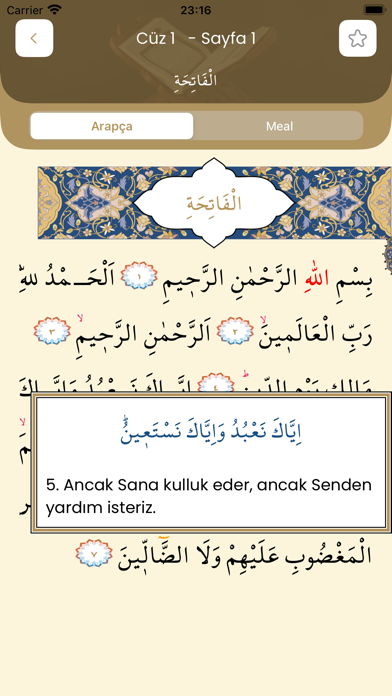 Carrier 23:16
Cüz 1 - Sayfa 1
الْفَاتِحَةِ
Arapça Meal
الْفَاتِحَةِ
بِسْمِ اللّٰهِ الرَّحْمٰنِ الرَّح۪يمِ ﴿١﴾ اَلْحَـمْدُ لِلّٰهِ
رَبِّ الْعَالَم۪ينَۙ ﴿٢﴾ اَلرَّحْمٰنِ الرَّح۪يمِۙ ﴿٣﴾
مَالِكِ يَوْمِ الدّ۪ينِۜ ﴿٤﴾ اِيَّاكَ نَعْبُدُ وَاِيَّاكَ
اِيَّاكَ نَعْبُدُ وَاِيَّاكَ نَسْتَع۪ينُۜ
5. Ancak Sana kulluk eder, ancak Senden
yardım isteriz.
الْمَغْضُوبِ عَلَيْهِمْ وَلَا الضَّٓالّ۪ينَ ﴿٧﴾